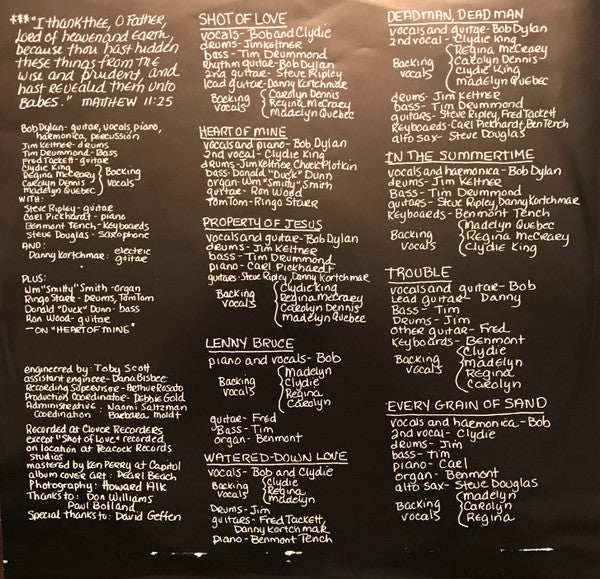 ***"I thank thee, O Father,
Lord of heaven and Earth,
because thou hast hidden
these things from the
wise and prudent, and
hast revealed them unto
Babes." MATTHEW 11:25
Bob Dylan - guitar, vocals, piano,
harmonica, percussion
Jim Keltner - drums
Tim Drummond - Bass
Fred Tackett - guitar
Clydie King
Regina McCreary
Carolyn Dennis
Madelyn Quebec
Backing
Vocals
WITH:
Steve Ripley - guitar
Carl Pickhardt - piano
Benmont Tench - Keyboards
Steve Douglas - saxophone
AND:
Danny Kortchmar: electric
guitar
PLUS:
Wm "Smitty" Smith - organ
Ringo Starr - Drums, Tom Tom
Donald "Duck" Dunn - bass
Ron Wood - guitar
- ON "HEART OF MINE"
engineered by: Toby Scott
assistant engineer - Dana Bisbee
Recording Supervisor - Arthur Rosato
Production Coordinator - Debbie Gold
Administrative - Naomi Saltzman
Coordination - Barbara Moldt
Recorded at Clover Recorders
except "Shot of Love" recorded
on location at Peacock Records
Studios
mastered by Ken Perry at Capitol
album cover art: Pearl Beach
Photography: Howard Alk
Thanks to: Don Williams
Paul Bolland
Special thanks to: David Geffen
SHOT OF LOVE
vocals - Bob and Clydie
drums - Jim Keltner
bass - Tim Drummond
Rhythm guitar - Bob Dylan
2nd guitar - Steve Ripley
lead guitar - Danny Kortchmar
Backing
vocals
Carolyn Dennis
Regina McCraey
Madelyn Quebec
HEART OF MINE
vocals and piano - Bob Dylan
2nd vocal - Clydie King
drums - Jim Keltner, Chuck Plotkin
bass - Donald "Duck" Dunn
organ Wm "Smitty" Smith
guitar - Ron Wood
Tom Tom - Ringo Starr
PROPERTY OF JESUS
vocals and guitar - Bob Dylan
drums - Jim Keltner
bass - Tim Drummond
piano - Carl Pickhardt
guitars - Steve Ripley, Danny Kortchmar
Backing
vocals
Clydie King
Regina McCraey
Carolyn Dennis
Madelyn Quebec
LENNY BRUCE
piano and vocals - Bob
Backing
vocals
Madelyn
Clydie
Regina
Carolyn
guitar - Fred
Bass - Tim
organ - Benmont
WATERED-DOWN LOVE
vocals - Bob and Clydie
Backing
vocals
Clydie
Regina
Madelyn
Drums - Jim
guitars - Fred Tackett,
Danny Kortchmar
piano - Benmont Tench
DEAD MAN, DEAD MAN
vocals and guitar - Bob Dylan
2nd vocal - Clydie King
Backing
vocals
Regina McCreary
Carolyn Dennis
Clydie King
Madelyn Quebec
drums - Jim Keltner
bass - Tim Drummond
guitars - Steve Ripley, Fred Tackett
Keyboards - Carl Pickhardt, Ben Tench
alto sax - Steve Douglas
IN THE SUMMERTIME
vocals and harmonica - Bob Dylan
drums - Jim Keltner
Bass - Tim Drummond
guitars - Steve Ripley, Danny Kortchmar
Keyboards - Benmont Tench
Backing
vocals
Madelyn Quebec
Regina McCreary
Clydie King
TROUBLE
vocals and guitar - Bob
Lead guitar - Danny
Bass - Tim
Drums - Jim
other guitar - Fred
Keyboards - Benmont
Backing
vocals
Clydie
Madelyn
Regina
Carolyn
EVERY GRAIN OF SAND
vocals and harmonica - Bob
2nd vocal - Clydie
drums - Jim
bass - Tim
piano - Carl
organ - Benmont
alto sax - Steve Douglas
Backing
vocals
Madelyn
Carolyn
Regina